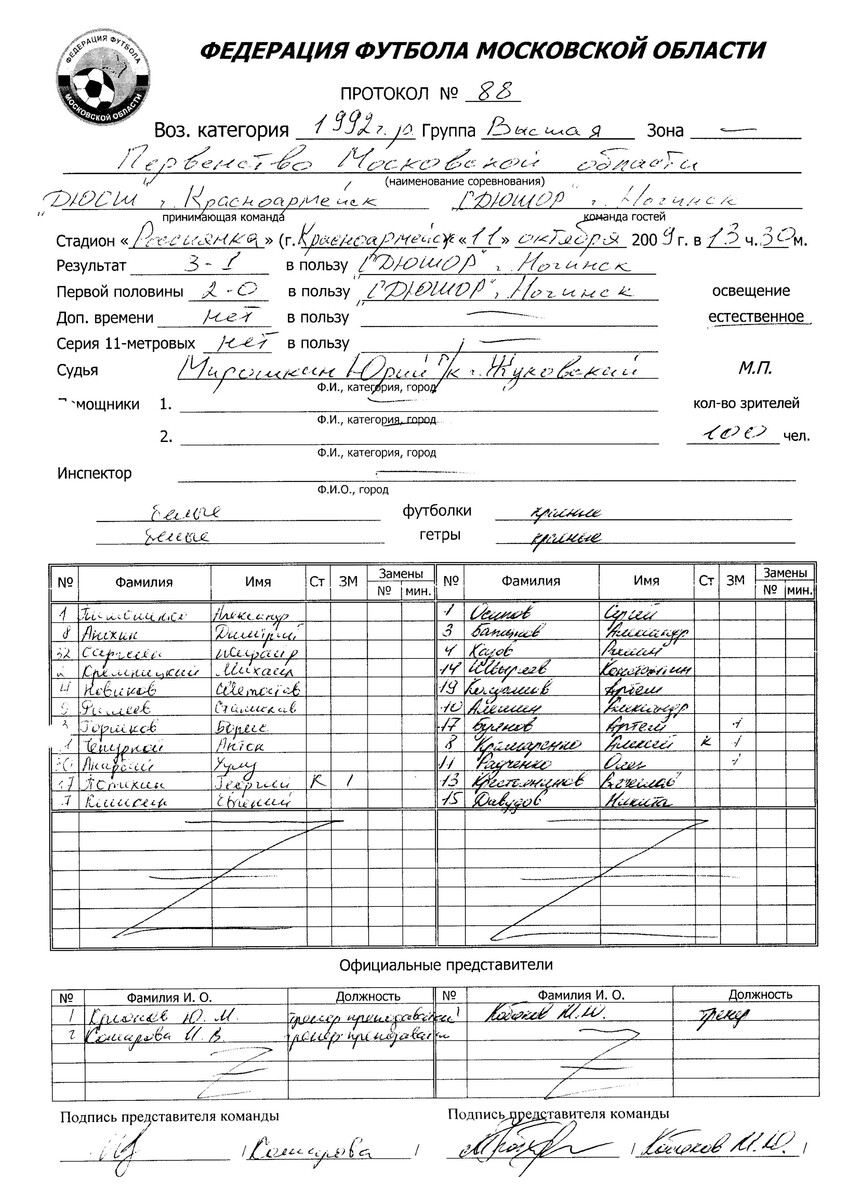 ФЕДЕРАЦИЯ ФУТБОЛА
МОСКОВСКОЙ ОБЛАСТИ
ФЕДЕРАЦИЯ ФУТБОЛА МОСКОВСКОЙ ОБЛАСТИ
ПРОТОКОЛ № 88
Воз. категория 1992 г.р. Группа Высшая Зона —
Первенство Московской области
(наименование соревнования)
"ДЮСШ г. Красноармейск "СДЮШОР" г. Ногинск
принимающая команда команда гостей
Стадион «Россиянка» (г. Красноармейск «11» октября 2009 г. в 13 ч. 30 м.
Результат 3-1 в пользу "СДЮШОР" г. Ногинск
Первой половины 2-0 в пользу "СДЮШОР", Ногинск освещение
Доп. времени нет в пользу — естественное
Серия 11-метровых нет в пользу —
Судья Мирошкин Юрий г. Жуковский М.П.
Ф.И., категория, город
мощники 1. кол-во зрителей
Ф.И., категория, город
2. 100 чел.
Ф.И., категория, город
Инспектор —
Ф.И.О., город
белые футболки красные
белые гетры красные
№ Фамилия Имя Ст ЗМ Замены № мин. № Фамилия Имя Ст ЗМ Замены № мин.
1 Александр 1 Осипов Сергей
8 Анихин Димитрий 3 Александр
32 4
Кремницкий Михаил 14 Константин
4 Новиков 19 Артем
Станислав 10 Алешин Александр
Горшков Борис 17 Буянов Артем 1
Антон 8 Алексей К 1
11 Радченко Олег 1
Георгий К 1 13 Крестьянинов Вячеслав
Евгений 15 Давудов Никита
Официальные представители
№ Фамилия И. О. Должность № Фамилия И. О. Должность
1 Ю. М. тренер преподаватель Кабанов М.Ю. тренер
2 Комарова И. В. тренер преподаватель
Подпись представителя команды Подпись представителя команды
/ Комарова / / М.Ю. /